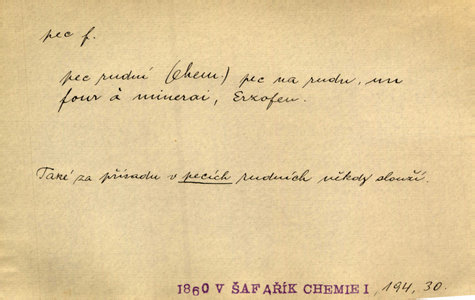 pec f.
pec rudní (Chem.) pec na rudu, un
four à minerai, Erzofen.
Také za přísadu v pecích rudních někdy slouží.
1860 V ŠAFAŘÍK CHEMIE I, 194, 30.